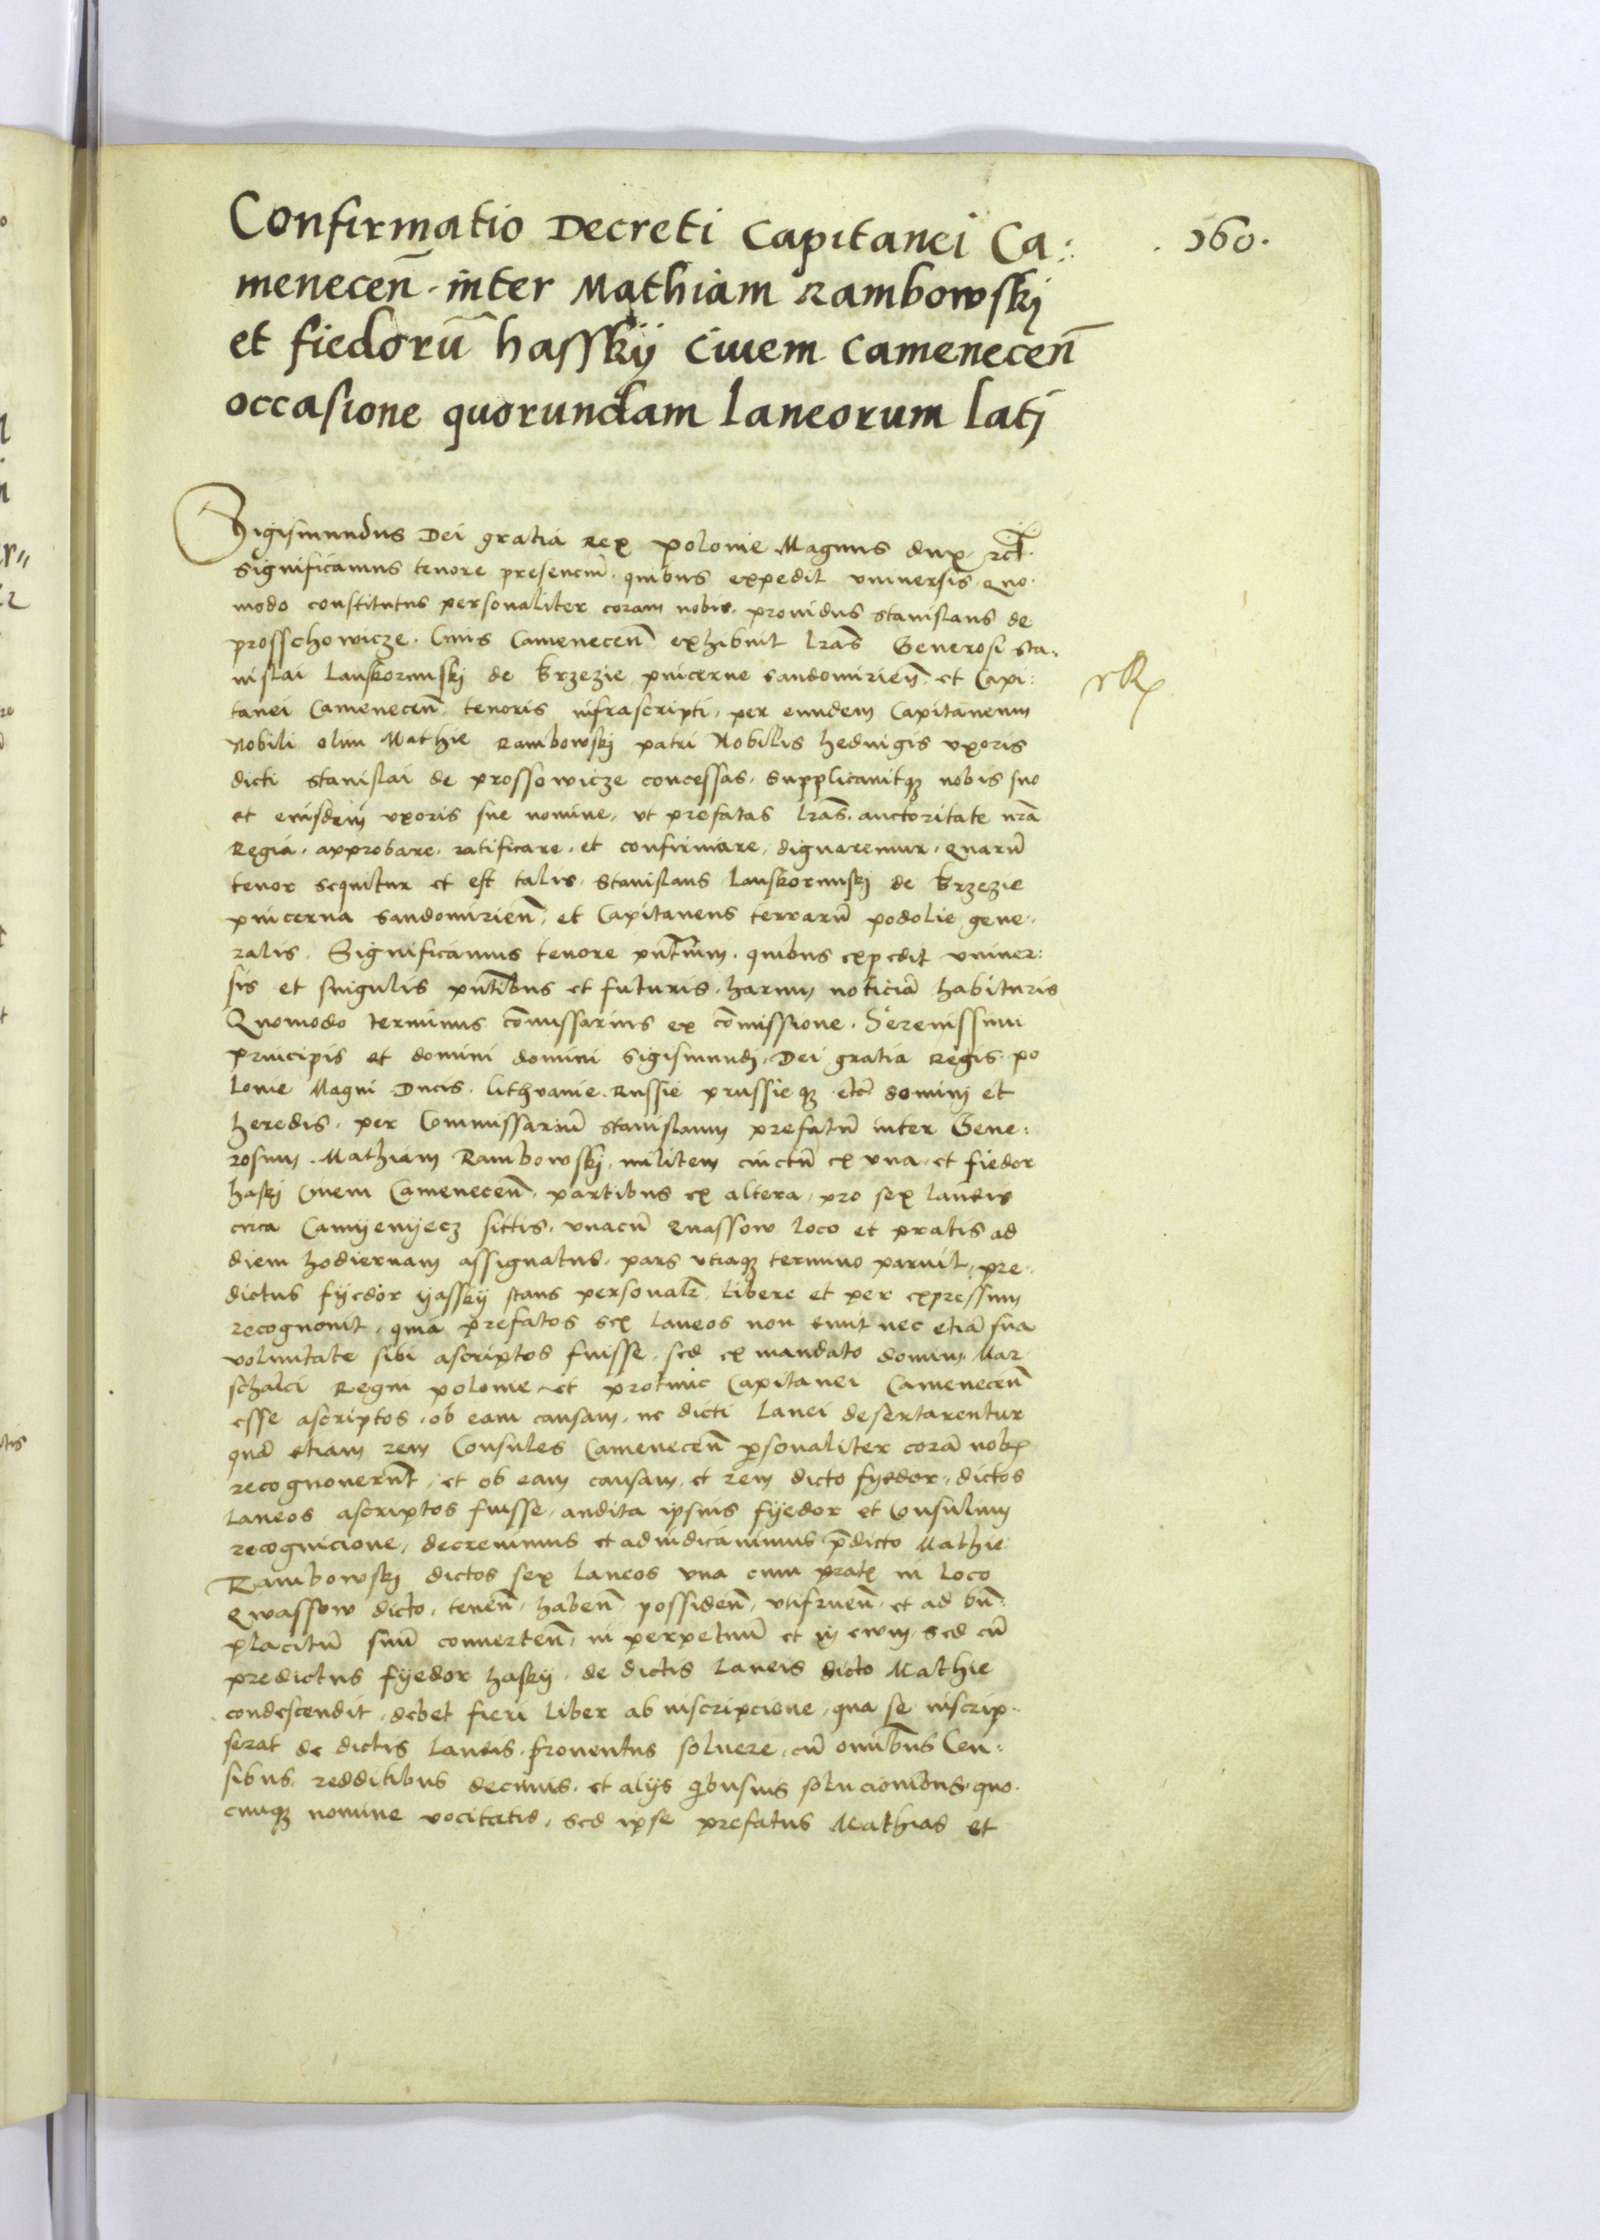 Confirmatio Decreti Capitanei Ca:
menecen̄ inter Mathiam Rambowskj
et fiedorū hasskij Ciuem Camenecen̄
occasione quorundam laneorum latj
.160.
Sigismundus Dei gratia Rex polonie Magnus dux etc̄.
Significamus tenore presenciū. quibus expedit vniuersis Quo.
modo constitutus personaliter coram nobis. prouidus stanislaus de
prosschowicze. Ciuis Camenecen̄ exhibuit lr̄as Generosi sta.
nislai Lanskorunskj de Brzezie pincerne sandomirien̄. et Capi:
tanei Camenecen̄ tenoris infrascripti, per eundem Capitaneum
Nobili olim Mathie Rambowskj patri Nobilis heduigis vxoris
dicti stanislai de prossowicze concessas. supplicauitqꝫ nobis suo
et eiusdem vxoris sue nomine, vt prefatas lr̄as. auctoritate nr̄a
Regia. approbare. ratificare. et confirmare, dignaremur. Quarū
tenor sequitur et est talis. Stanislaus Lanskorunskj de Brzezie
pincerna sandomirien̄. et Capitaneus terrarū podolie gene.
ralis. Significamus tenore pn̄tium. quibus expedit vniuer:
sis et singulis pn̄tibus et futuris. harum noticiā habituris
Quomodo terminus com̄issarius ex com̄issione. Serenissimi
principis et domini domini Sigismundj. Dei gratia Regis po
lonie Magni Ducis. lithvanie. Russie prussie qꝫ etc̄ dominj et
heredis. per Commissariū stanislaum prefatū inter Gene:
rosum. Mathiam Rambowskj. militem cinctū ex vna. et fiedor
haskj Ciuem Camenecen̄. partibus ex altera, pro sex laneis
circa Camijenijecz sittis. vnacū Quassow loco et pratis ad
diem hodiernam assignatus. pars vtraqꝫ termino paruit, pre.
dictus fijedor ijasskij stans personalr̄. libere et per expressum
recognouit. quia prefatos sex laneos non emit nec etiā sua
voluntate sibi ascriptos fuisse. sed ex mandato domini Mar
schalci Regni polonie et protunc Capitanei Camenecen̄
esse ascriptos. ob eam causam. ne dicti lanei desertarentur
quā etiam rem Consules Camenecen̄ personaliter corā nobis
recognouerūt. et ob eam causam. et rem dicto fijedor. dictos
laneos ascriptos fuisse. audita ipsius fijedor et Consulum
recognicione, decreuimus et adiudicauimus p̄dicto Mathie
Rambowskj dictos sex laneos vna cum pratis in loco
Qwassow dicto, tenen̄. haben̄. possiden̄. vtifruen̄. et ad bn̄
placitū suū conuerten̄. in perpetuū et in ewm. sed cū
predictus fijedor haskij. de dictis laneis dicto Mathie
condescendit. debet fieri liber ab inscripcione, qua se inscrip.
serat de dictis laneis. frouentus soluere, cū omībus Cen:
sibus. redditibus decimis. et alijs quibusuis solucionibus. quo.
cunqꝫ nomine vocitatis. sed ipse prefatus Mathias et